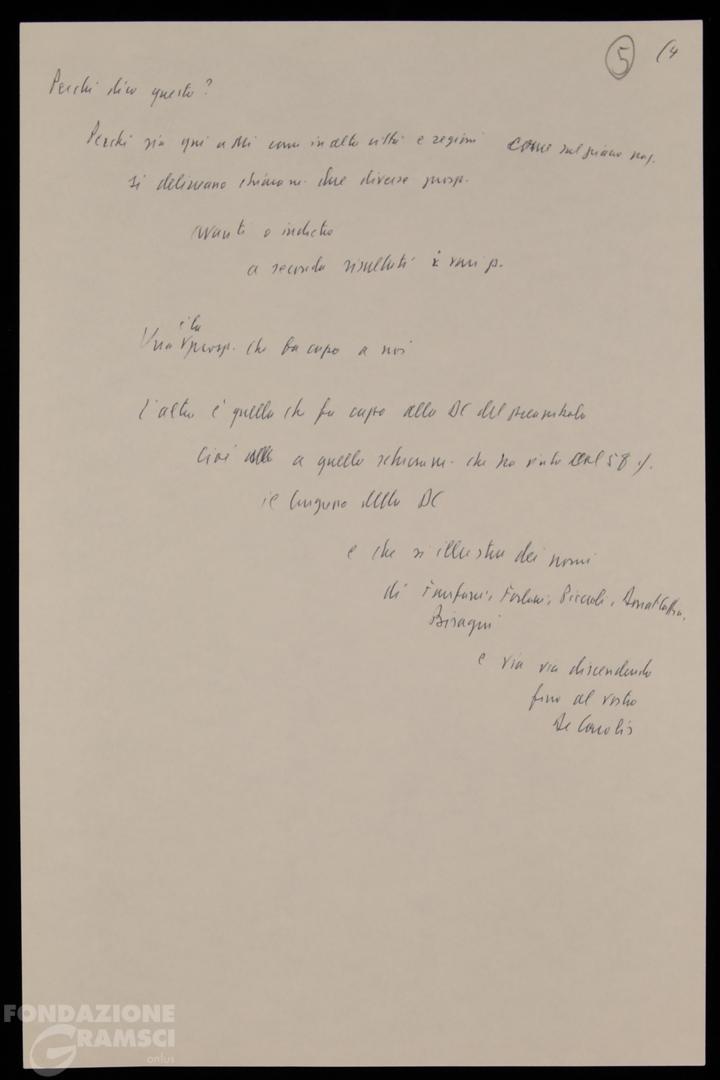 5 (4
Perchè dico questo?
Perchè sia qui a Mi come in altre città e regioni come sul piano naz.
si delineano chiaram. due diverse prosp.
avanti o indietro
a seconda risultati vari p.
è la
Una prosp. che fa capo a noi
L'altra è quella che fa capo alla DC del preambolo
cioè a quello schieram. che ha vinto col 58 %
il Congresso della DC
e che si illustra dei nomi
di Fanfani, Forlani, Piccoli, Donat Cattin,
Bisaglia
e via via discendendo
fino al vostro
De Carolis
FONDAZIONE
GRAMSCI
onlus